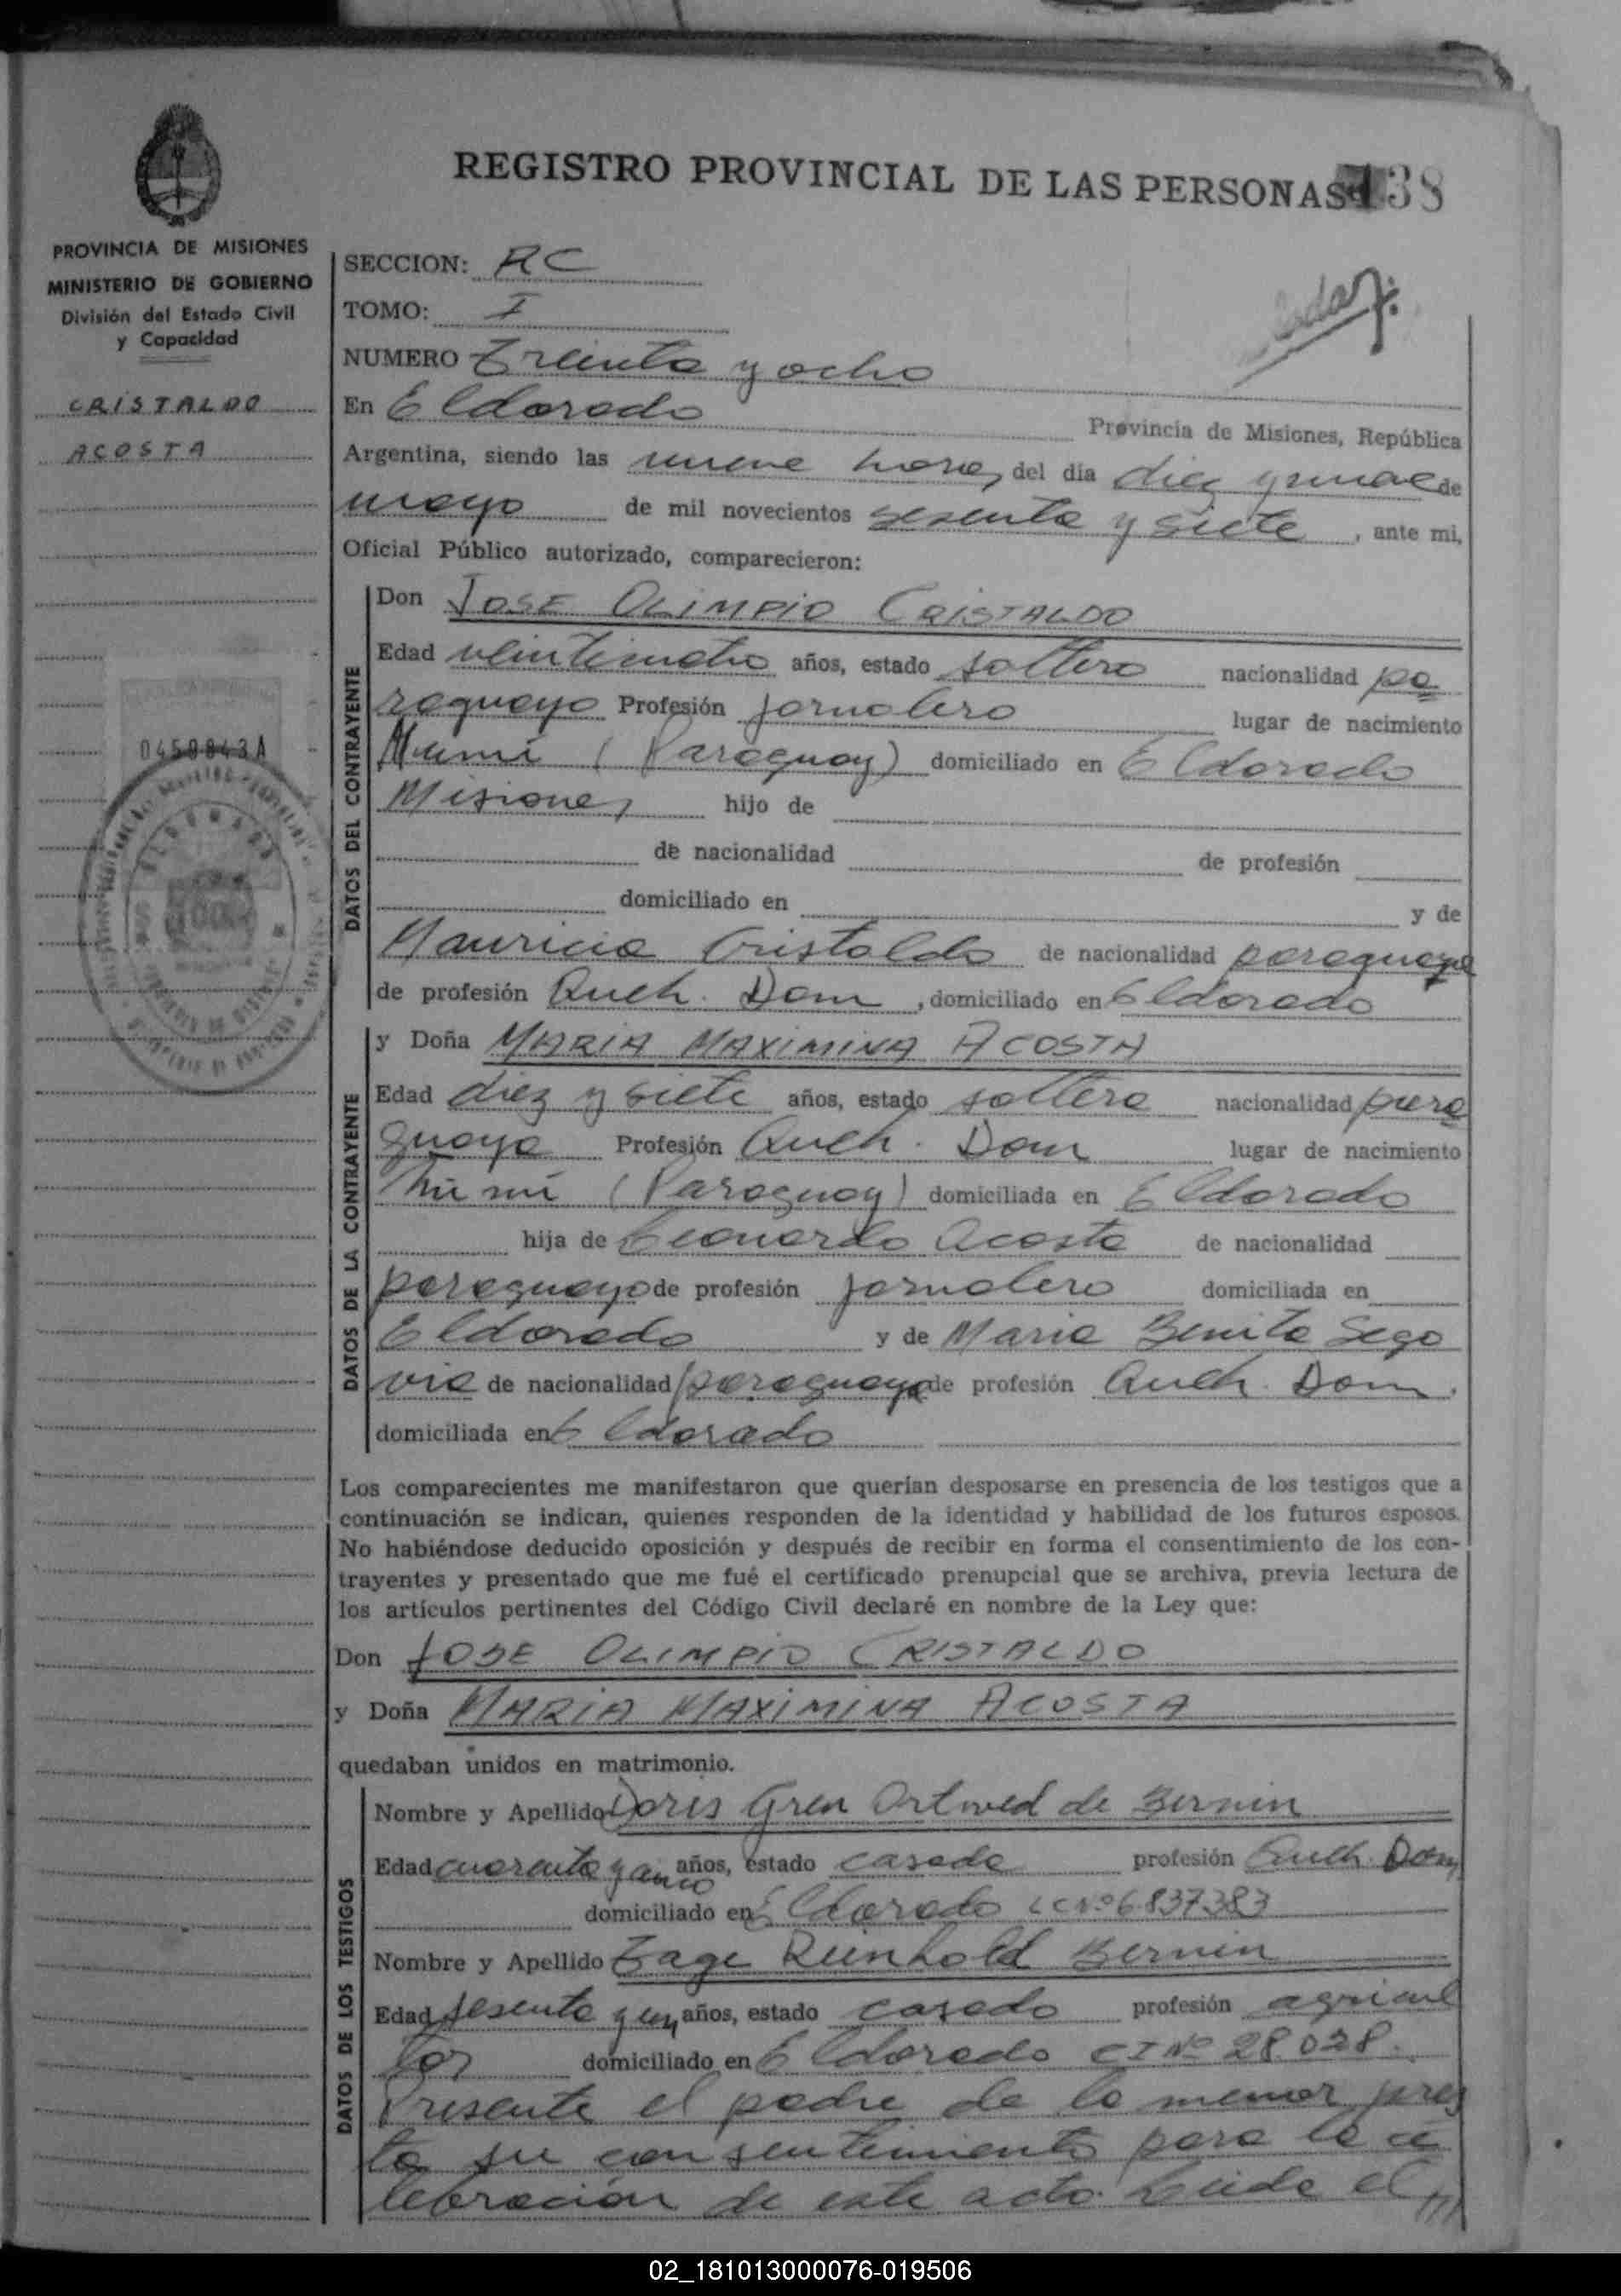 REGISTRO PROVINCIAL DE LAS PERSONAS 138
PROVINCIA DE MISIONES
MINISTERIO DE GOBIERNO
División del Estado Civil
y Capacidad
CRISTALDO
ACOSTA
0450843A
SECCION: RC
TOMO: I
NUMERO Treinta y ocho
En Eldorado Provincia de Misiones, República
Argentina, siendo las nueve horas, del día diez y nueve de
mayo de mil novecientos sesenta y siete, ante mi,
Oficial Público autorizado, comparecieron:
DATOS DEL CONTRAYENTE
Don JOSE OLIMPIO CRISTALDO
Edad veinticuatro años, estado soltero nacionalidad pa
raguayo Profesión jornalero lugar de nacimiento
Ñumí (Paraguay) domiciliado en Eldorado
Misiones hijo de
de nacionalidad de profesión
domiciliado en y de
Mauricia Cristaldo de nacionalidad paraguaya
de profesión Queh. Dom, domiciliado en Eldorado
DATOS DE LA CONTRAYENTE
y Doña MARIA MAXIMINA ACOSTA
Edad diez y siete años, estado soltera nacionalidad para
guaya Profesión Queh. Dom lugar de nacimiento
Ñumí (Paraguay) domiciliada en Eldorado
hija de Leonardo Acosta de nacionalidad
paraguayo de profesión jornalero domiciliada en
Eldorado y de Maria Benita Sego
via de nacionalidad paraguaya de profesión Queh. Dom.
domiciliada en Eldorado
Los comparecientes me manifestaron que querían desposarse en presencia de los testigos que a
continuación se indican, quienes responden de la identidad y habilidad de los futuros esposos.
No habiéndose deducido oposición y después de recibir en forma el consentimiento de los con-
trayentes y presentado que me fué el certificado prenupcial que se archiva, previa lectura de
los artículos pertinentes del Código Civil declaré en nombre de la Ley que:
Don JOSE OLIMPIO CRISTALDO
y Doña MARIA MAXIMINA ACOSTA
quedaban unidos en matrimonio.
DATOS DE LOS TESTIGOS
Nombre y Apellido Doris Gren Ortved de Bernin
Edad cuarenta y cinco años, estado casada profesión Queh. Dom,
domiciliado en Eldorado LC Nº 6837383
Nombre y Apellido Tage Reinhold Bernin
Edad sesenta y un años, estado casado profesión agricul
tor domiciliado en Eldorado CI Nº 28.028.
Presente el padre de la menor pres
ta su consentimiento para la ce
lebración de este acto. Leida el
02_181013000076-019506